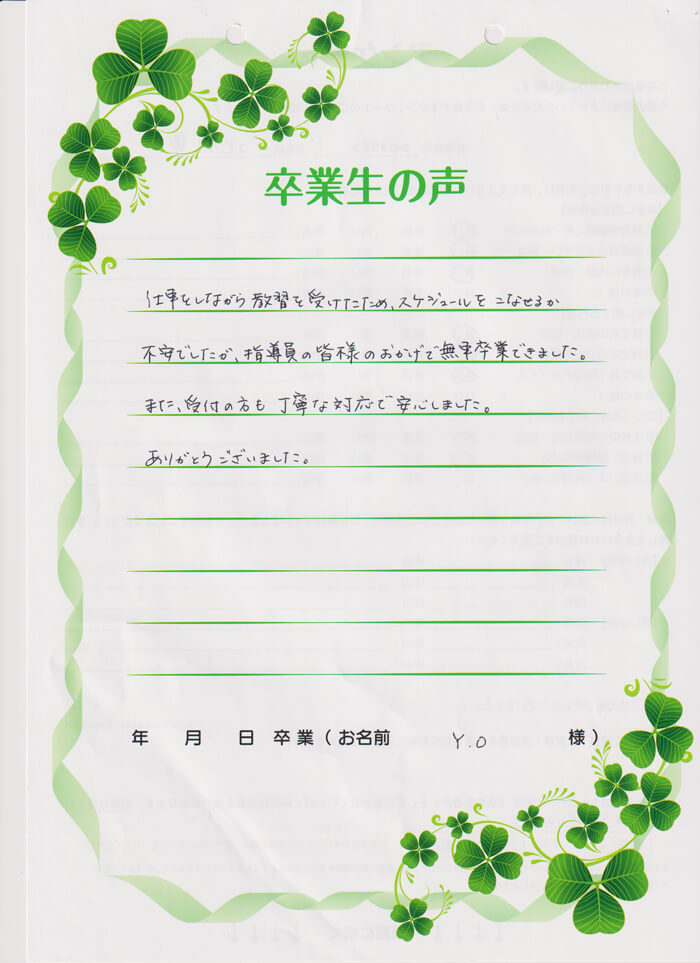 卒業生の声
仕事をしながら教習を受けたため、スケジュールをこなせるか
不安でしたが、指導員の皆様のおかげで無事卒業できました。
また、受付の方も丁寧な対応で安心しました。
ありがとうございました。
年 月 日 卒業（お名前 Y.O 様）